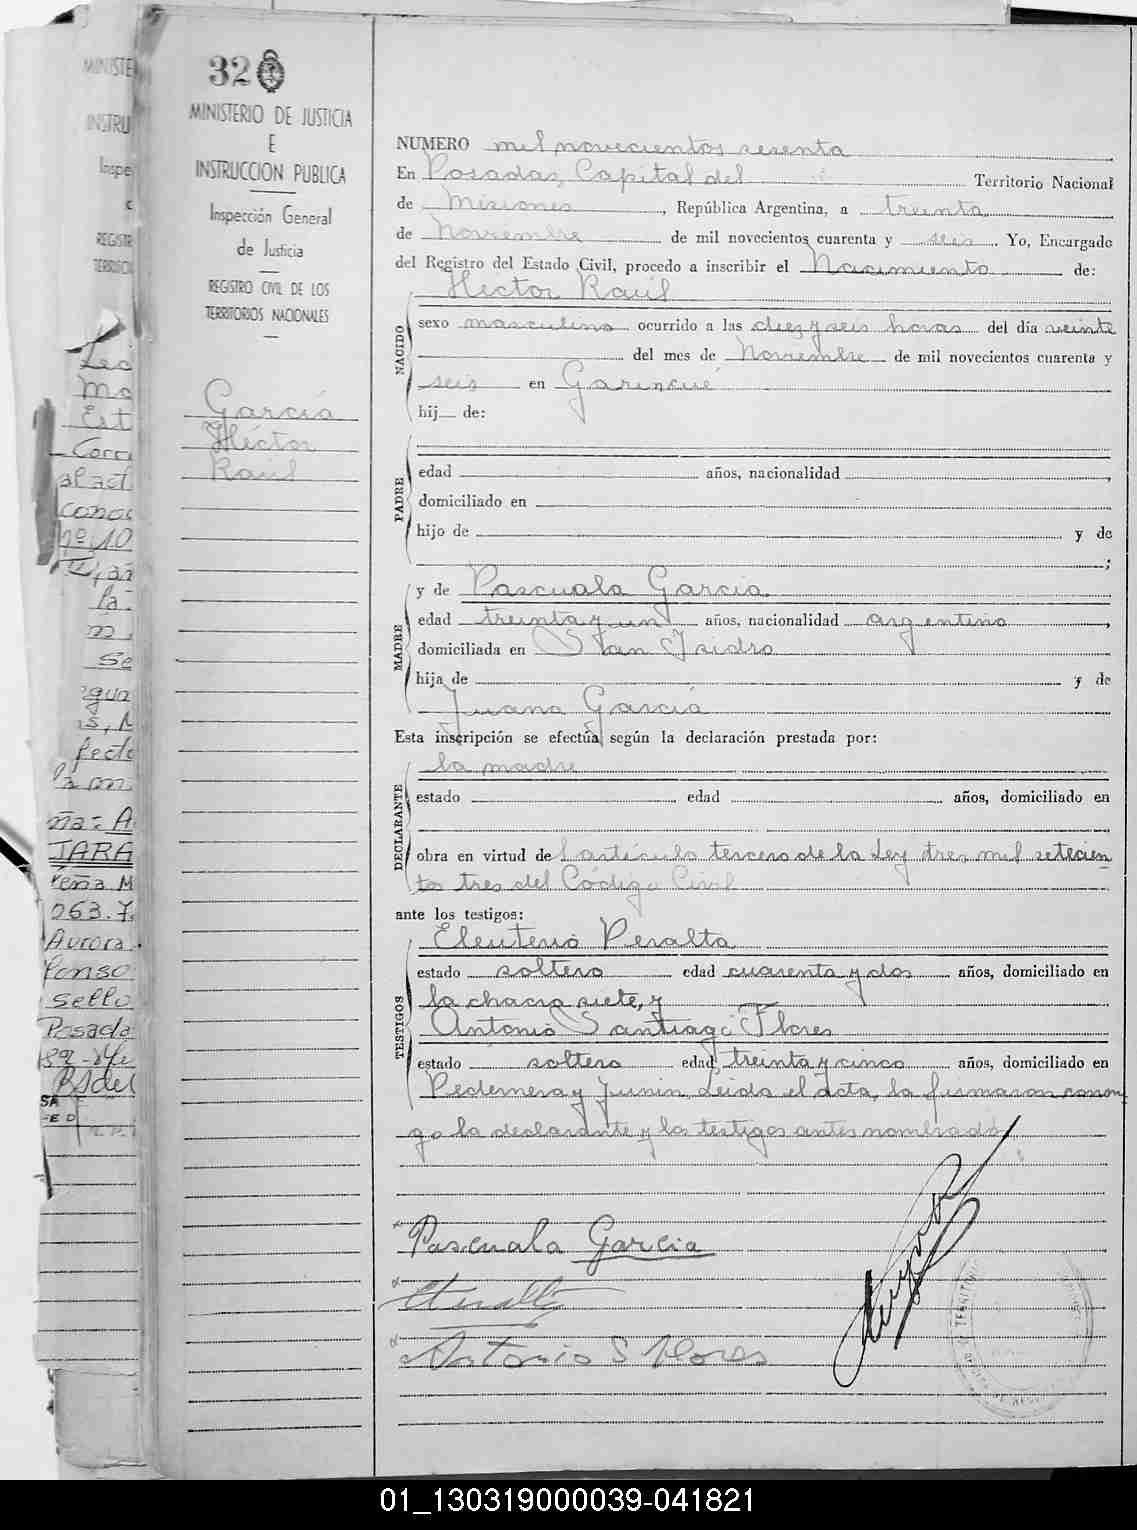 32
MINISTERIO DE JUSTICIA
E
INSTRUCCION PUBLICA
Inspección General
de Justicia
REGISTRO CIVIL DE LOS
TERRITORIOS NACIONALES
García
Héctor
Raúl
NUMERO mil novecientos sesenta
En Posadas, Capital del Territorio Nacional
de Misiones, República Argentina, a treinta
de Noviembre de mil novecientos cuarenta y seis. Yo, Encargado
del Registro del Estado Civil, procedo a inscribir el Nacimiento de:
Héctor Raúl
NACIDO
sexo masculino ocurrido a las diez y seis horas del día veinte
del mes de Noviembre de mil novecientos cuarenta y
seis en
hij de:
PADRE
edad años, nacionalidad
domiciliado en
hijo de y de
;
MADRE
y de Pascuala García
edad treinta y un años, nacionalidad argentina,
domiciliada en San Isidro
hija de y de
Juana García
Esta inscripción se efectúa según la declaración prestada por:
la madre
DECLARANTE
estado edad años, domiciliado en
obra en virtud del artículo tercero de la Ley tres mil setecien
tos tres del Código Civil
ante los testigos:
TESTIGOS
Eleuterio Peralta
estado soltero edad cuarenta y dos años, domiciliado en
la chacra siete, y
Antonio Santiago Flores
estado soltero edad treinta y cinco años, domiciliado en
Pedernera y Junin Leida el acta, la firmaron conmi
go la declarante y los testigos antes nombrados
Pascuala Garcia
Antonio S Flores
Lea
Est
Corr
al act
conoc
nº 10
se
Aurora
sello
Posada
01_130319000039-041821